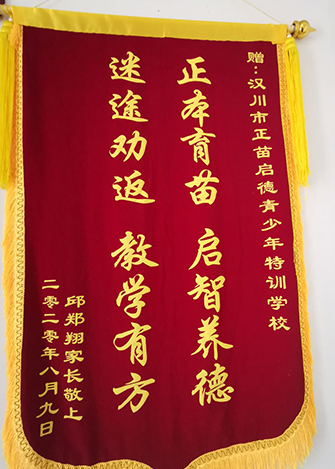 赠：汉川市正苗启德青少年特训学校
正本育苗 启智养德
迷途劝返 教学有方
邱郑翔家长敬上
二零二零年八月九日